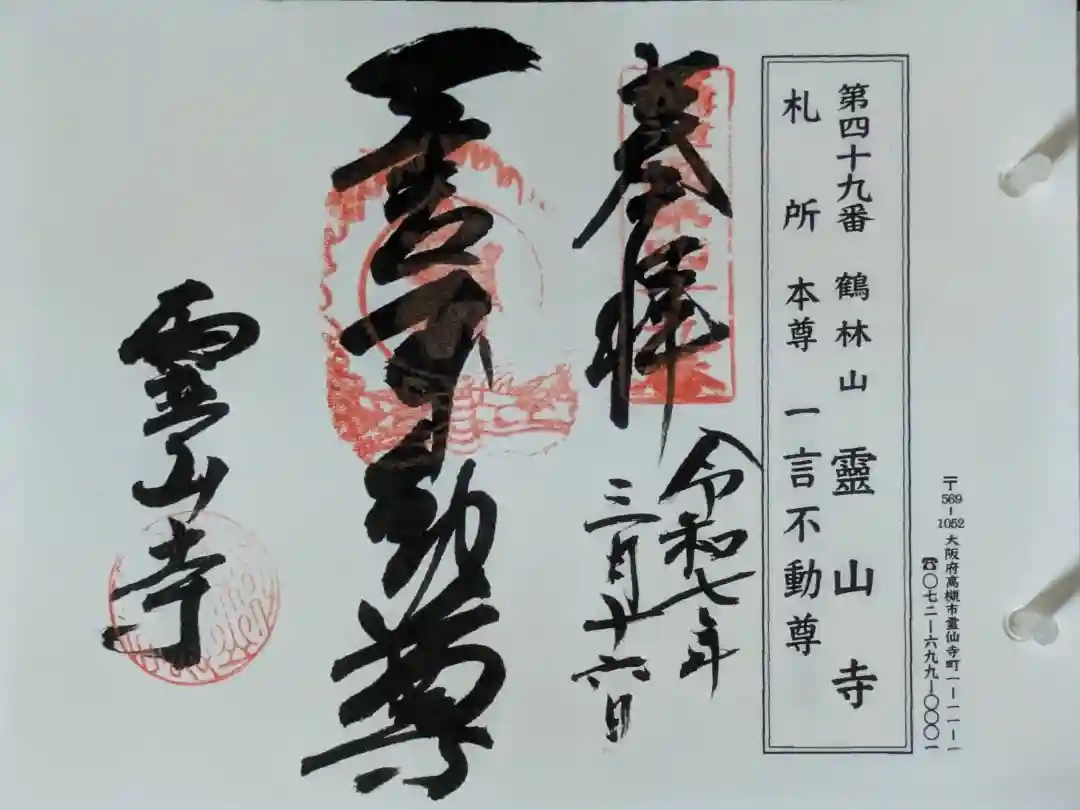 〒569-1052 大阪府高槻市霊仙寺町一-一一-一
☎〇七二-六九九-〇〇〇一
第四十九番 鶴林山 靈山寺
札所本尊 一言不動尊
奉拝
令和七年
三月十六日
一言不動尊
靈山寺